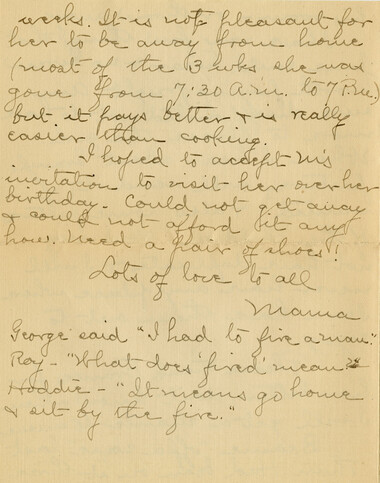 weeks. It is not pleasant for
her to be away from home
(most of the 3 wks she was
gone from 7:30 A.m. to 7 P.m.)
but it pays better & is really
easier than cooking.
I hoped to accept M's
invitation to visit her over her
birthday. Could not get away
& could not afford it any
how. Need a pair of shoes!
Lots of love to all
Mama
George said "I had to fire a man."
Roy - "What does 'fired' mean?"
Hoddie - "It means go home
& sit by the fire."